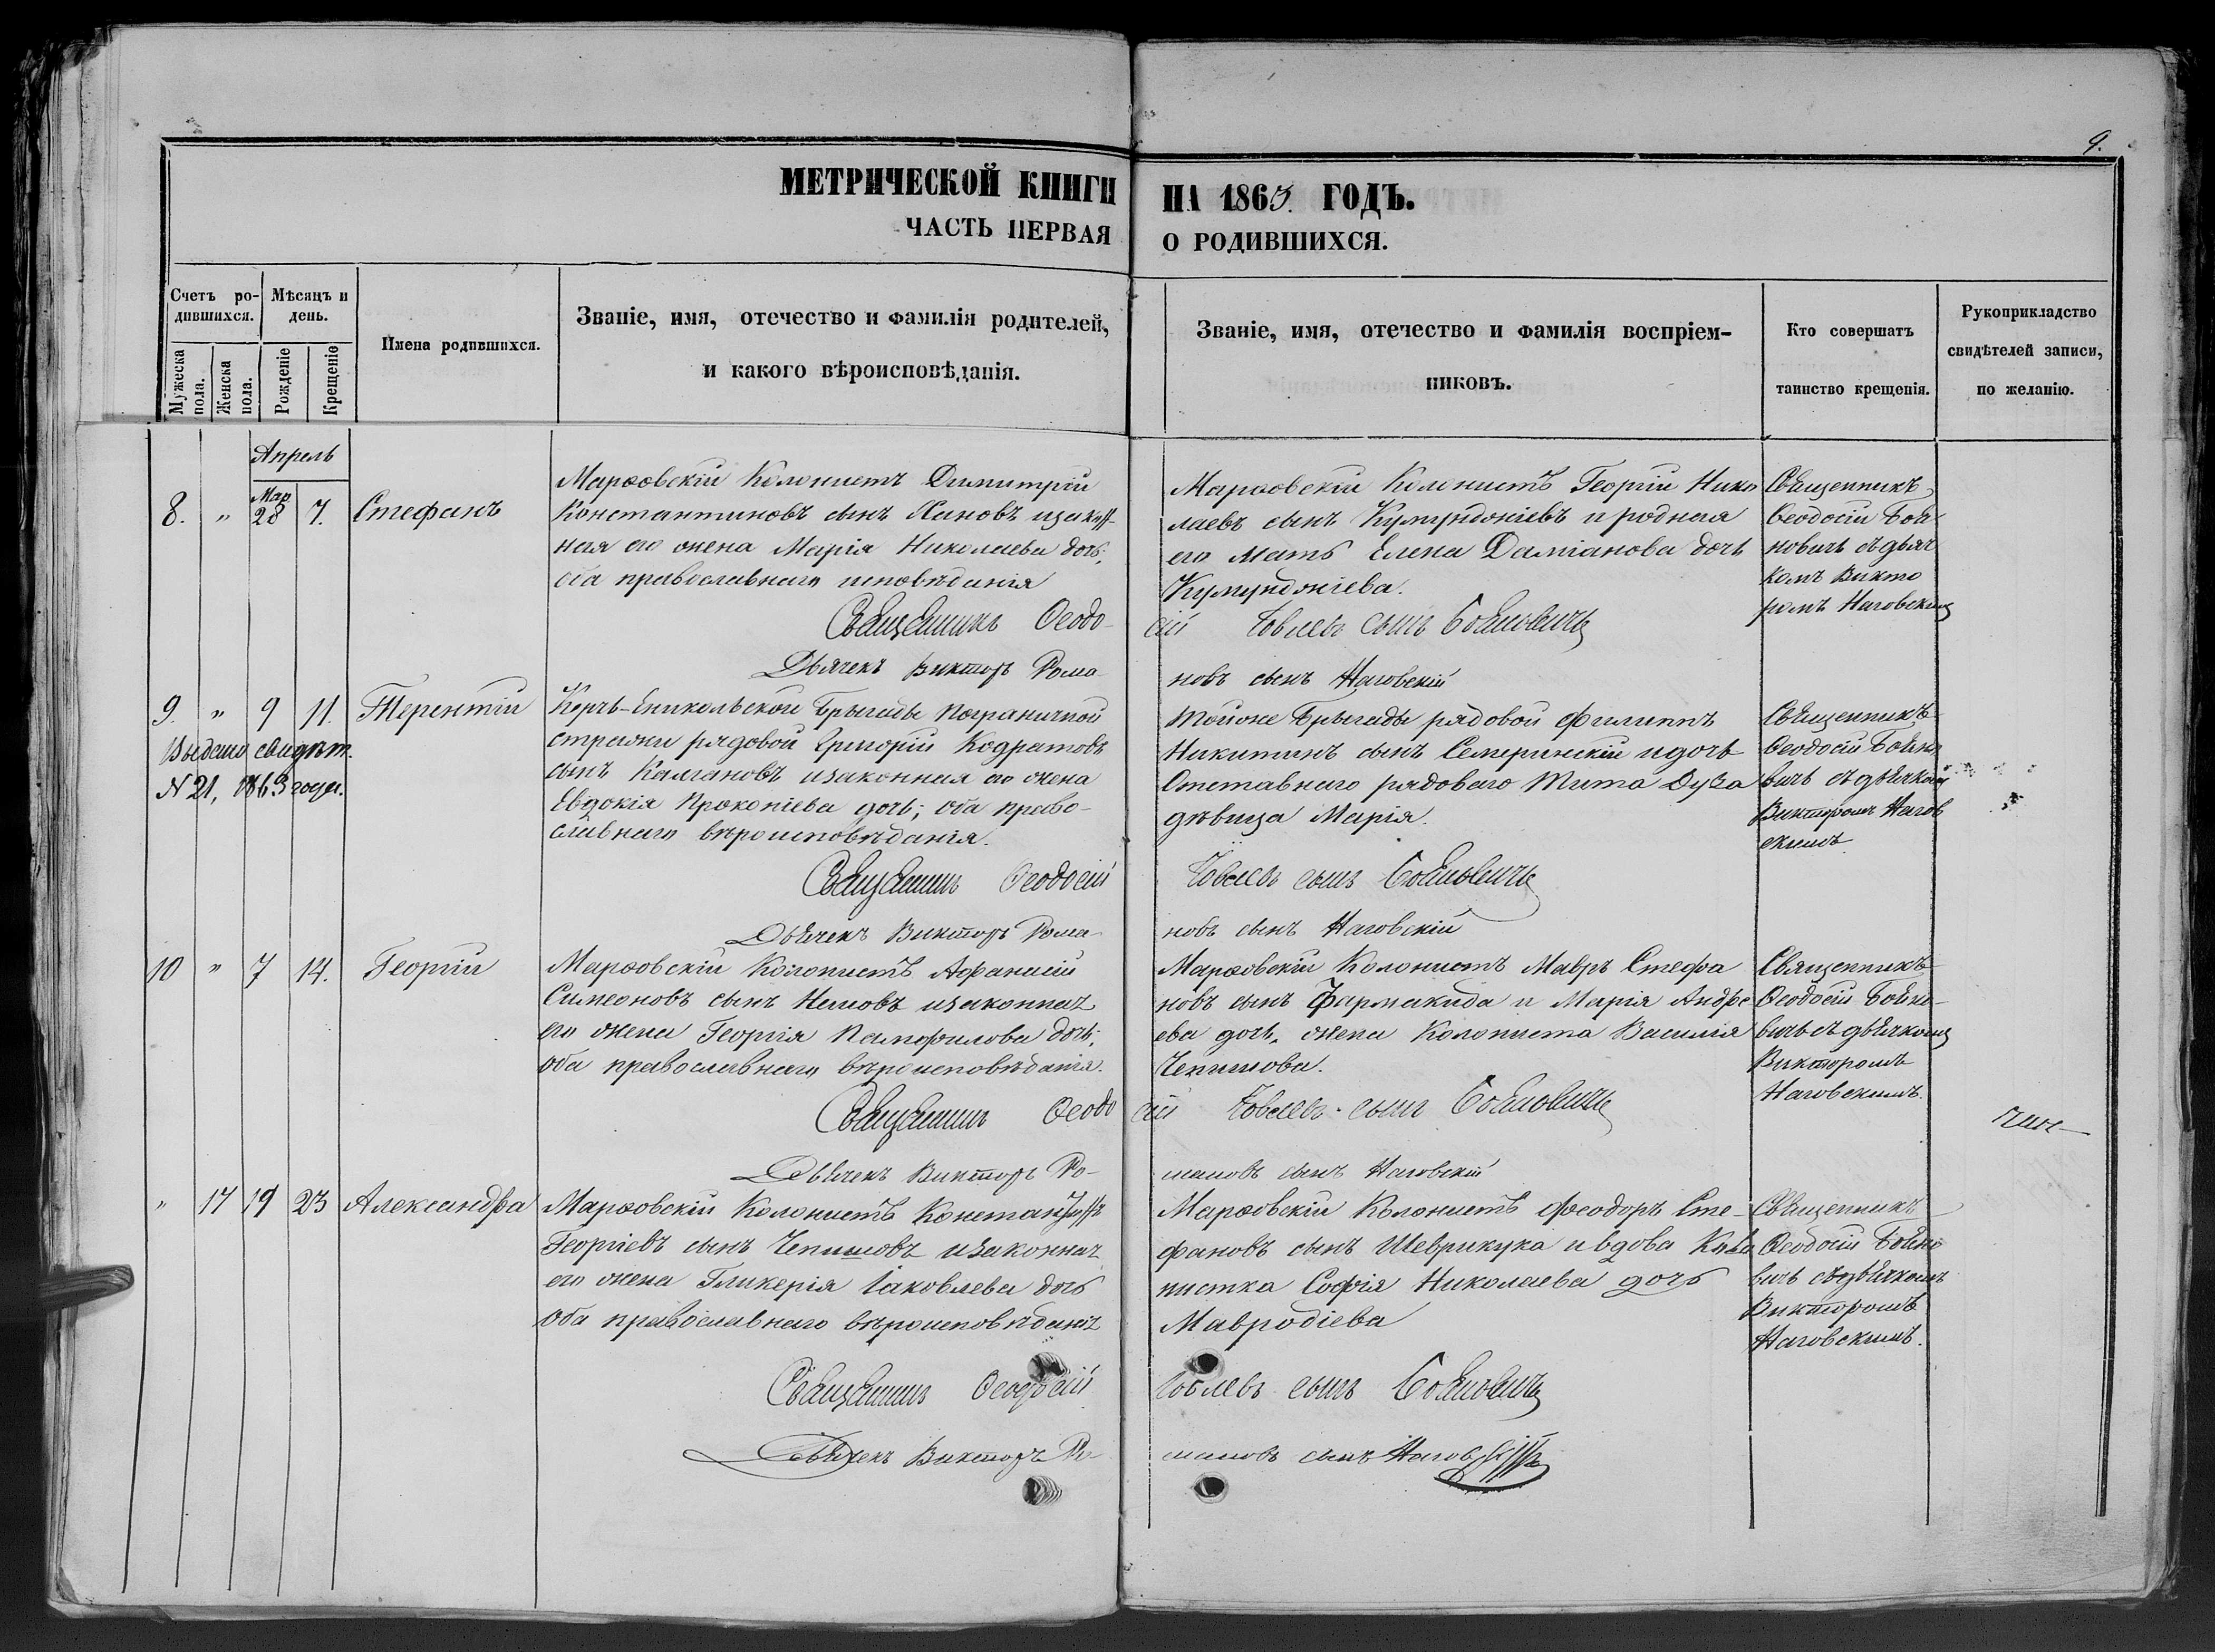 9.
МЕТРИЧЕСКОЙ КНИГИ НА 1863. ГОДЪ.
ЧАСТЬ ПЕРВАЯ О РОДИВШИХСЯ.
Счетъ ро-
дившихся.
Мѣсяцъ и
день.
Мужеска
пола.
Женска
пола.
Рожденіе
Крещеніе
Имена родившихся.
Званіе, имя, отечество и фамилія родителей,
и какого вѣроисповѣданія.
Званіе, имя, отечество и фамилія воспріем-
никовъ.
Кто совершатъ
таинство крещенія.
Рукоприкладство
свидѣтелей записи,
по желанію.
Апрель
8. " Мар 28 7. Стефанъ
Марфовскій Колонистъ Димитрій
Константиновъ сынъ изакон-
ная его жена Марія Николаева дочь;
оба православнаго исповѣданія
Марфовскій Колонистъ Георгій Нико
лаевъ сынъ Кумунджіевъ и родная
его мать Елена Даміанова дочь
Кумунджіева.
Священникъ
Ѳеодосій Боя
новичъ съ дьяч
комъ Викто
ромъ Наговскимъ
Священникъ Ѳеодо-
сій Іовлевъ сынъ Бояновичъ
Дьячекъ Викторъ Рома-
новъ сынъ Наговскій
9. " 9 11. Терентій
Выдано свидѣт.
N 21, 1863 года.
Керчь-Еникольской Брыгады пограничной
стражи рядовой Григорій Кодратовъ
сынъ Калгановъ изаконная его жена
Евдокія Прокопіева дочь; оба право-
славнаго вѣроисповѣданія.
Тойже Брыгады рядовой Филиппъ
Никитинъ сынъ Семеринскій идочь
Отставнаго рядоваго Тита Дуза
дѣвица Марія.
Священникъ
Ѳеодосій Бояно
вичъ съ дьячкомъ
Викторомъ Нагов
скимъ
Священникъ Ѳеодосій
Іовлевъ сынъ Бояновичъ
Дьячекъ Викторъ Рома-
новъ сынъ Наговскій
10 " 7 14. Георгій
Марфовскій Колонистъ Афанасій
Симеоновъ сынъ изаконная
его жена Георгія Памфилова дочь;
оба православнаго вѣроисповѣданія.
Марфовскій Колонистъ Мавръ Стефа
новъ сынъ Фармакида и Марія Андре
ева дочь, жена Колониста Василія
Чепишова.
Священникъ
Ѳеодосій Бояно-
вичъ съ дьячкомъ
Викторомъ
Наговскимъ.
Священникъ Ѳеодо
сій Іовлевъ сынъ Бояновичъ
Дьячекъ Викторъ Ро-
мановъ сынъ Наговскій
" 17 19 23 Александра
Марфовскій Колонистъ Константинъ
Георгіевъ сынъ Чепишовъ изаконная
его жена Гликерія Іаковлева дочь
оба православнаго вѣроисповѣданія
Марфовскій Колонистъ Феодоръ Сте-
фановъ сынъ Шеврикука ивдова Коло
нистка Софія Николаева дочь
Мавродіева
Священникъ
Ѳеодосій Бояно
вичъ съ дьячкомъ
Викторомъ
Наговскимъ.
Священникъ Ѳеодосій
Іовлевъ сынъ Бояновичъ
Дьячекъ Викторъ Ро-
мановъ сынъ Наговскій